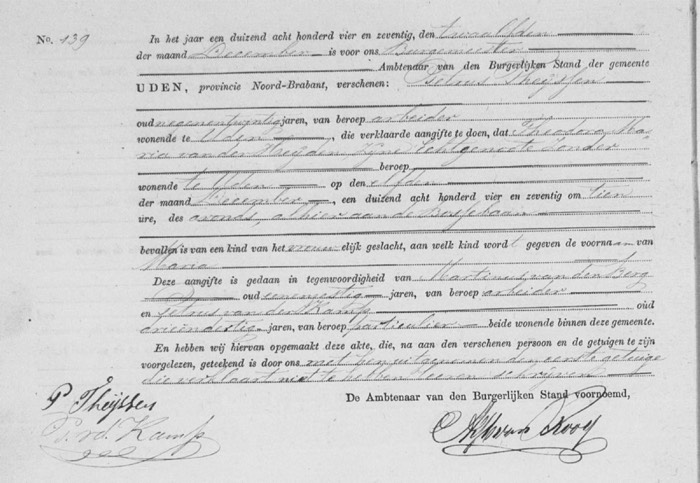 No. 139
In het jaar een duizend acht honderd vier en zeventig, den twaalfden
der maand December is voor ons Burgemeester
Ambtenaar van den Burgerlijken Stand der gemeente
UDEN, provincie Noord-Brabant, verschenen: Petrus Theijssen
oud negenentwintig jaren, van beroep arbeider
wonende te Uden, die verklaarde aangifte te doen, dat Theodora Ma-
ria van der Heijden, zijne Echtgenoote zonder
beroep
wonende te Uden op den elfden
der maand December, een duizend acht honderd vier en zeventig om tien
ure, des avonds, alhier aan de
bevallen is van een kind van het vrouwelijk geslacht, aan welk kind wordt gegeven de voornaam van
Maria
Deze aangifte is gedaan in tegenwoordigheid van Martinus van den Berg
oud jaren, van beroep arbeider
en Petrus van der Kamp oud
drieendertig jaren, van beroep particulier beide wonende binnen deze gemeente.
En hebben wij hiervan opgemaakt deze akte, die, na aan den verschenen persoon en de getuigen te zijn
voorgelezen, geteekend is door ons met hen uitgenomen den eerste getuige
die verklaart niet te hebben leeren schrijven
De Ambtenaar van den Burgerlijken Stand voornoemd,
P Theijssen
P. vd. Kamp
van Rooy